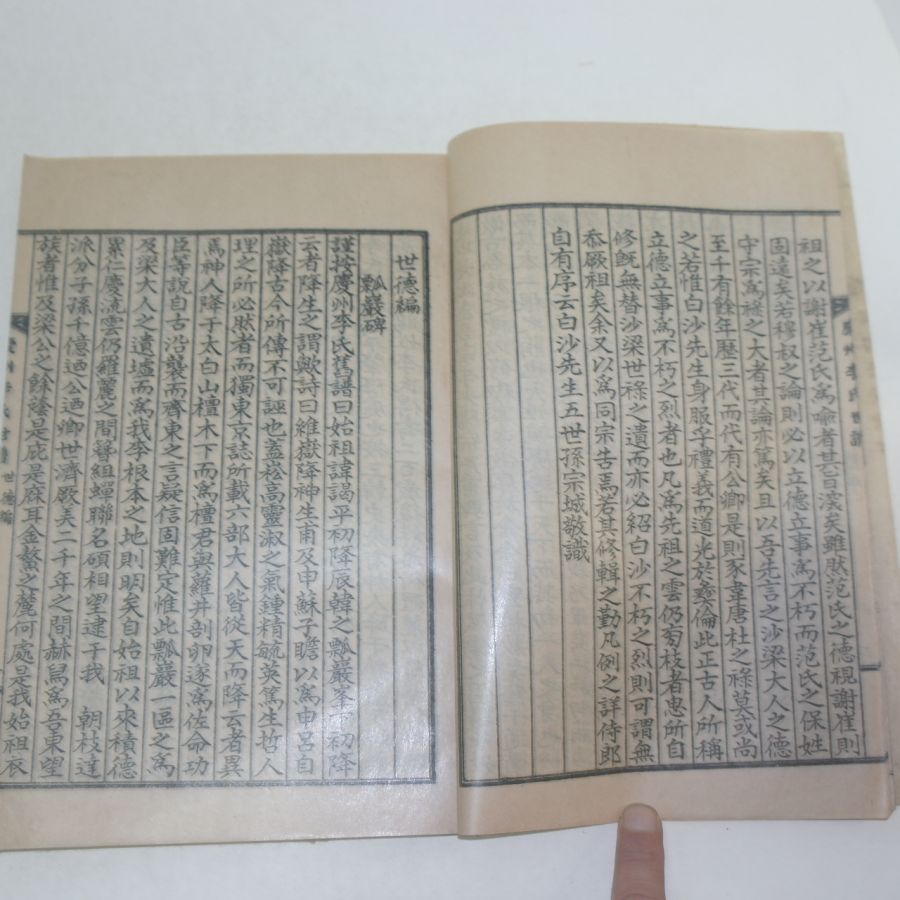 祖之以謝崔范氏爲喩者其旨深矣雖然范氏之德視謝崔則
固遠矣若穆叔之論則必以立德立事爲不朽而范氏之保姓
守宗爲祿之大者其論亦篤矣且以吾先言之沙梁大人之德
至千有餘年歷三代而代有公卿是則豕韋唐杜之祿莫或尚
之若惟白沙先生身服乎禮義而道光於彜倫此正古人所稱
立德立事爲不朽之烈者也凡爲先祖之雲仍苟枝者思所自
修旣無替沙梁世祿之遺而亦必紹白沙不朽之烈則可謂無
忝厥祖矣余又以爲同宗告焉若其修輯之勤凡例之詳侍郎
自有序云白沙先生五世孫宗城敬識
世德編
瓢巖碑
謹按慶州李氏舊譜曰始祖諱謁平初降辰韓之瓢巖峯下初降
云者降生之謂歟詩曰維嶽降神生甫及申蘇子瞻以爲申呂自
嶽降古今所傳不可誣也蓋崧高靈淑之氣鍾精毓英篤生哲人
理之所必然者而獨東京誌所載六部大人皆從天而降云者異
焉神人降于太白山檀木下而爲檀君與蘿井剖卵遂爲佐命功
臣等說自古沿襲而齊東之言疑信固難定惟此瓢巖一區之爲
及梁大人之遺墟而爲我李根本之地則明矣自始祖以來積德
累仁慶流雲仍羅麗之間簪組蟬聯名碩相望逮于我 朝枝達
派分子孫千億迺公迺卿世濟厥美二千年之間赫舃爲吾東望
族者惟及梁公之餘蔭是庇是庥耳金鰲之麓何處是我始祖衣
慶州李氏世譜 世德編